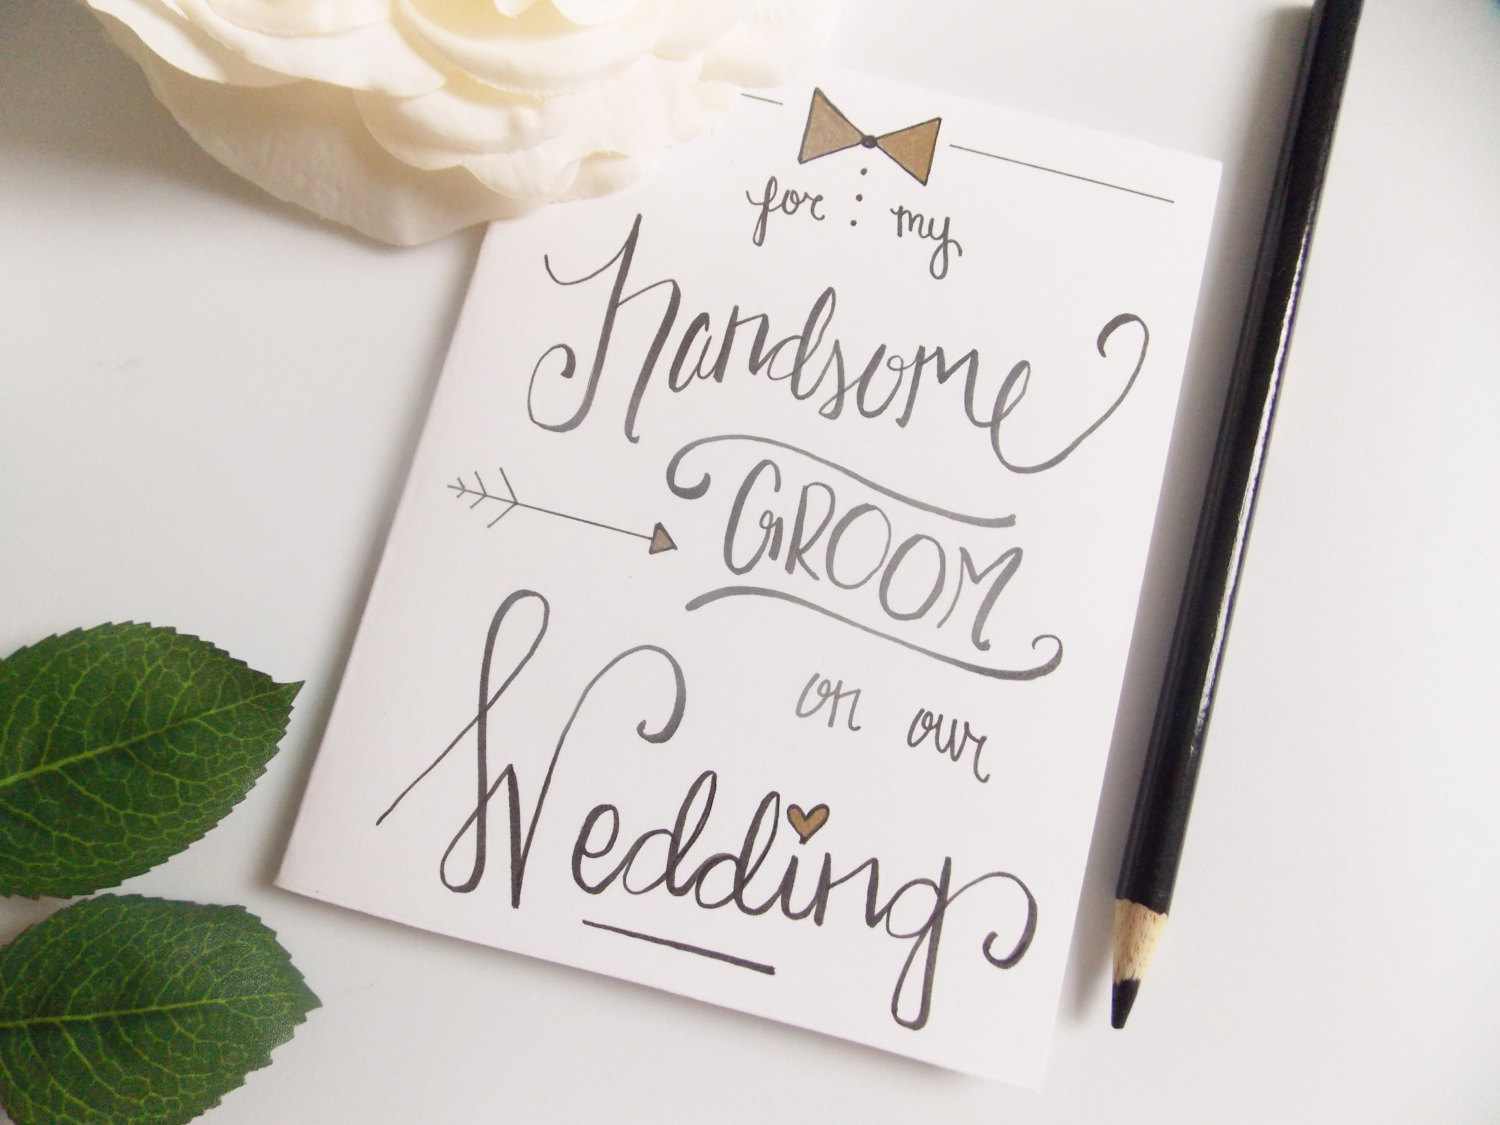 for my
Handsome
GROOM
on our
Wedding